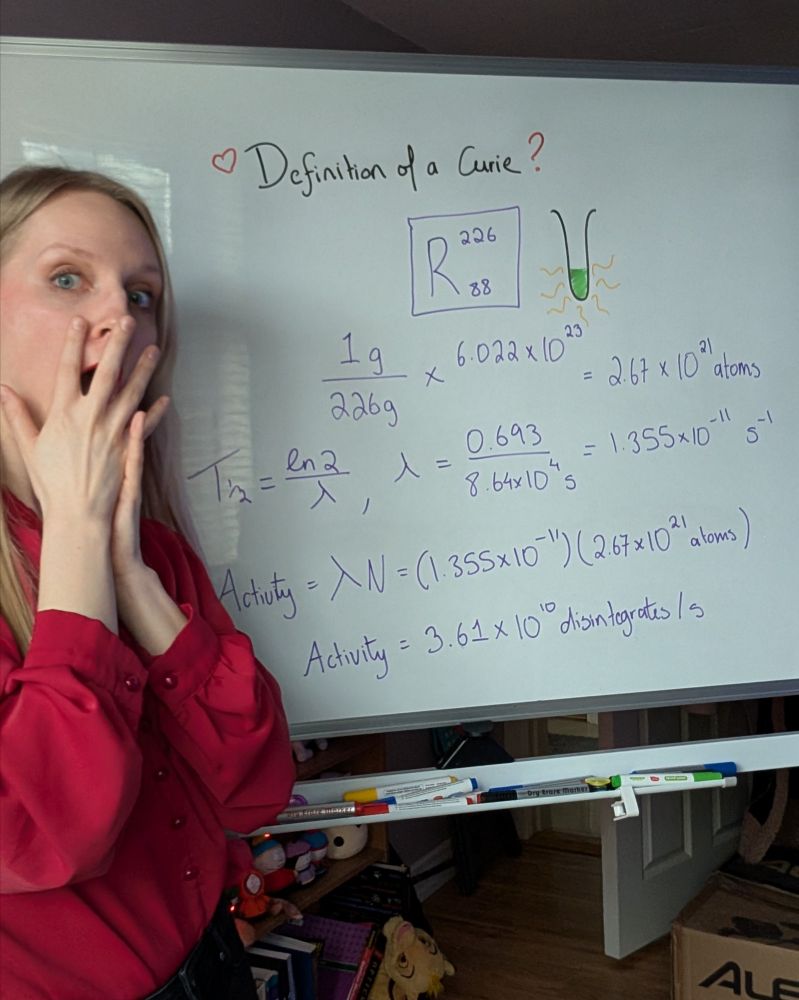 ♡ Definition of a Curie?
R 226 88
1g / 226g × 6.022 × 10^23 = 2.67 × 10^21 atoms
T½ = ln2 / λ , λ = 0.693 / 8.64×10^4 s = 1.355×10^-11 s^-1
Activity = λN = (1.355×10^-11)(2.67×10^21 atoms)
Activity = 3.61 × 10^10 disintegrates/s
Dry Erase Marker
Dry Erase Marker
ALE